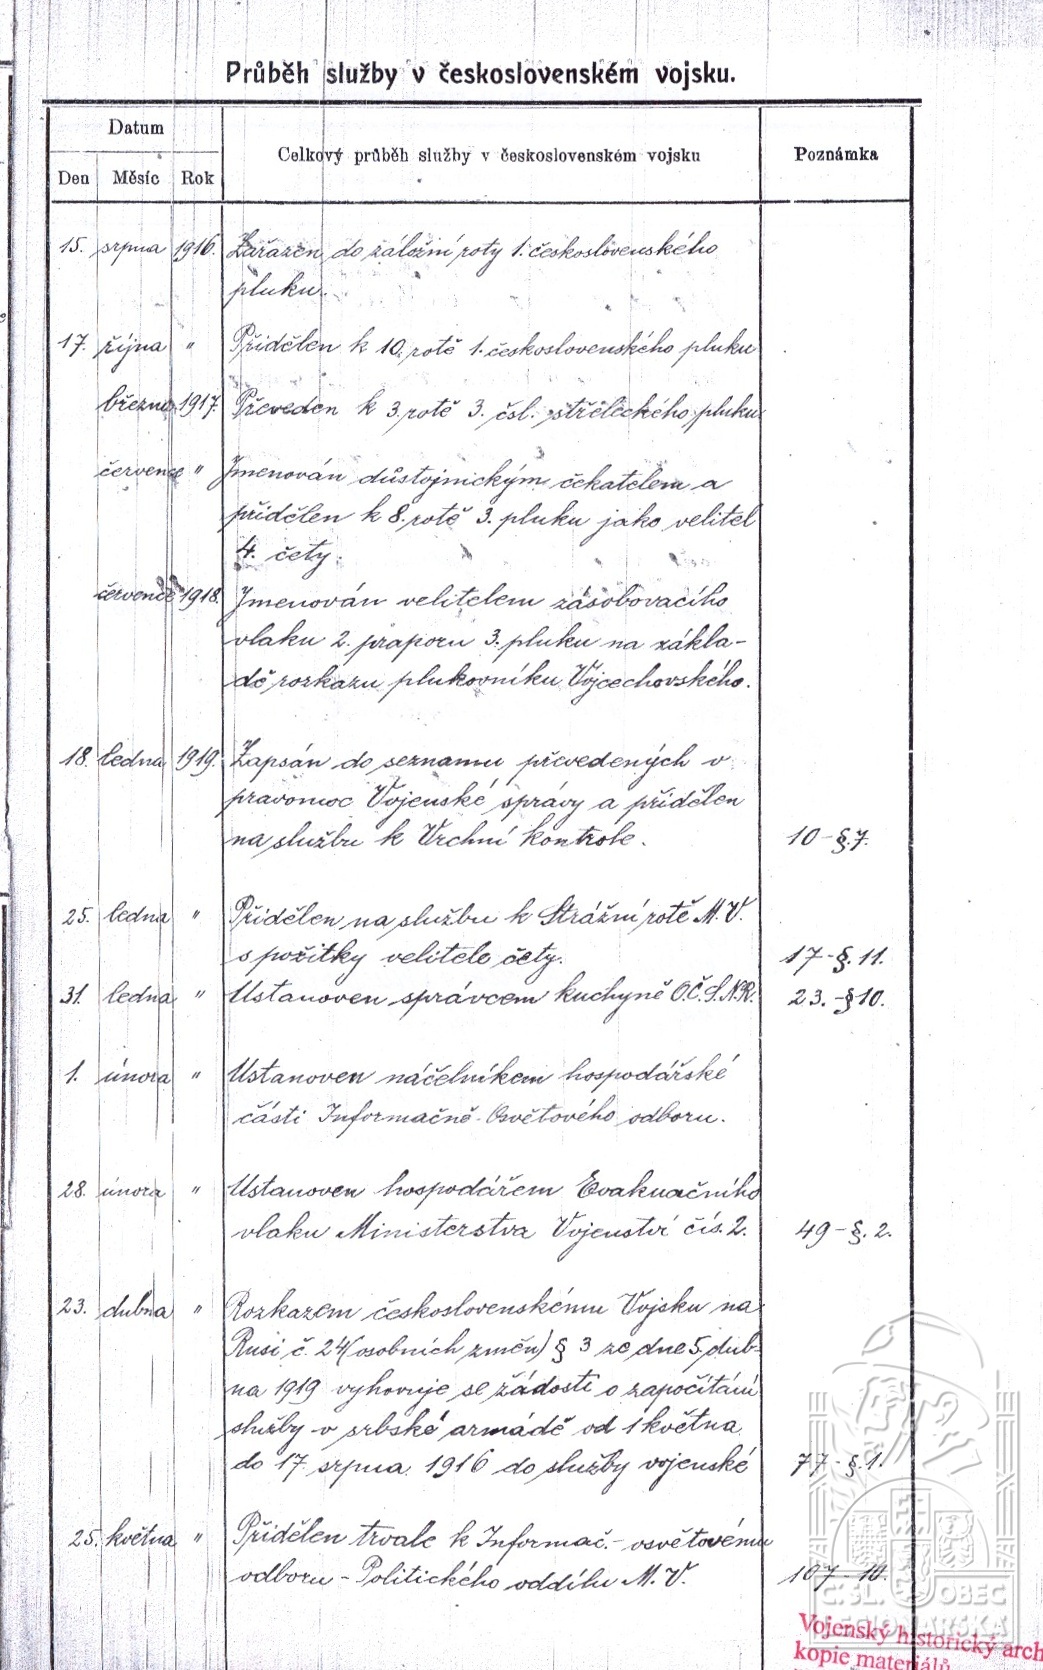 Průběh služby v československém vojsku.
Datum
Den Měsíc Rok
Celkový průběh služby v československém vojsku
Poznámka
15. srpna 1916. Zařazen do záložní roty 1. československého
pluku.
17. října " Přidělen k 10. rotě 1. československého pluku
března 1917. Převeden k 3. rotě 3. čsl. střeleckého pluku
července " Jmenován důstojnickým čekatelem a
přidělen k 8. rotě 3. pluku jako velitel
4. čety.
července 1918. Jmenován velitelem zásobovacího
vlaku 2. praporu 3. pluku na zákla-
dě rozkazu plukovníku Vojcechovského.
18. ledna 1919. Zapsán do seznamu převedených v
pravomoc Vojenské správy a přidělen
na službu k Vrchní kontrole. 10-§.7.
25. ledna " Přidělen na službu k Strážní rotě M.V.
s požitky velitele čety. 17-§.11.
31. ledna " Ustanoven správcem kuchyně O.Č.S.N.R. 23.-§10.
1. února " Ustanoven náčelníkem hospodářské
části Informačně-Osvětového odboru.
28. února " Ustanoven hospodářem Evakuačního
vlaku Ministerstva Vojenství čís. 2. 49-§.2.
23. dubna " Rozkazem československému Vojsku na
Rusi č. 24 (osobních změn) § 3 ze dne 5. dub-
na 1919 vyhovuje se žádosti o započítání
služby v srbské armádě od 1 května
do 17. srpna 1916 do služby vojenské 77-§.1.
25. května " Přidělen trvale k Informač.-osvětovému
odboru-Politického oddílu M.V. 107-10.
Č.SL. OBEC
LEGIONÁŘSKÁ
Vojenský historický arch
kopie materiálů